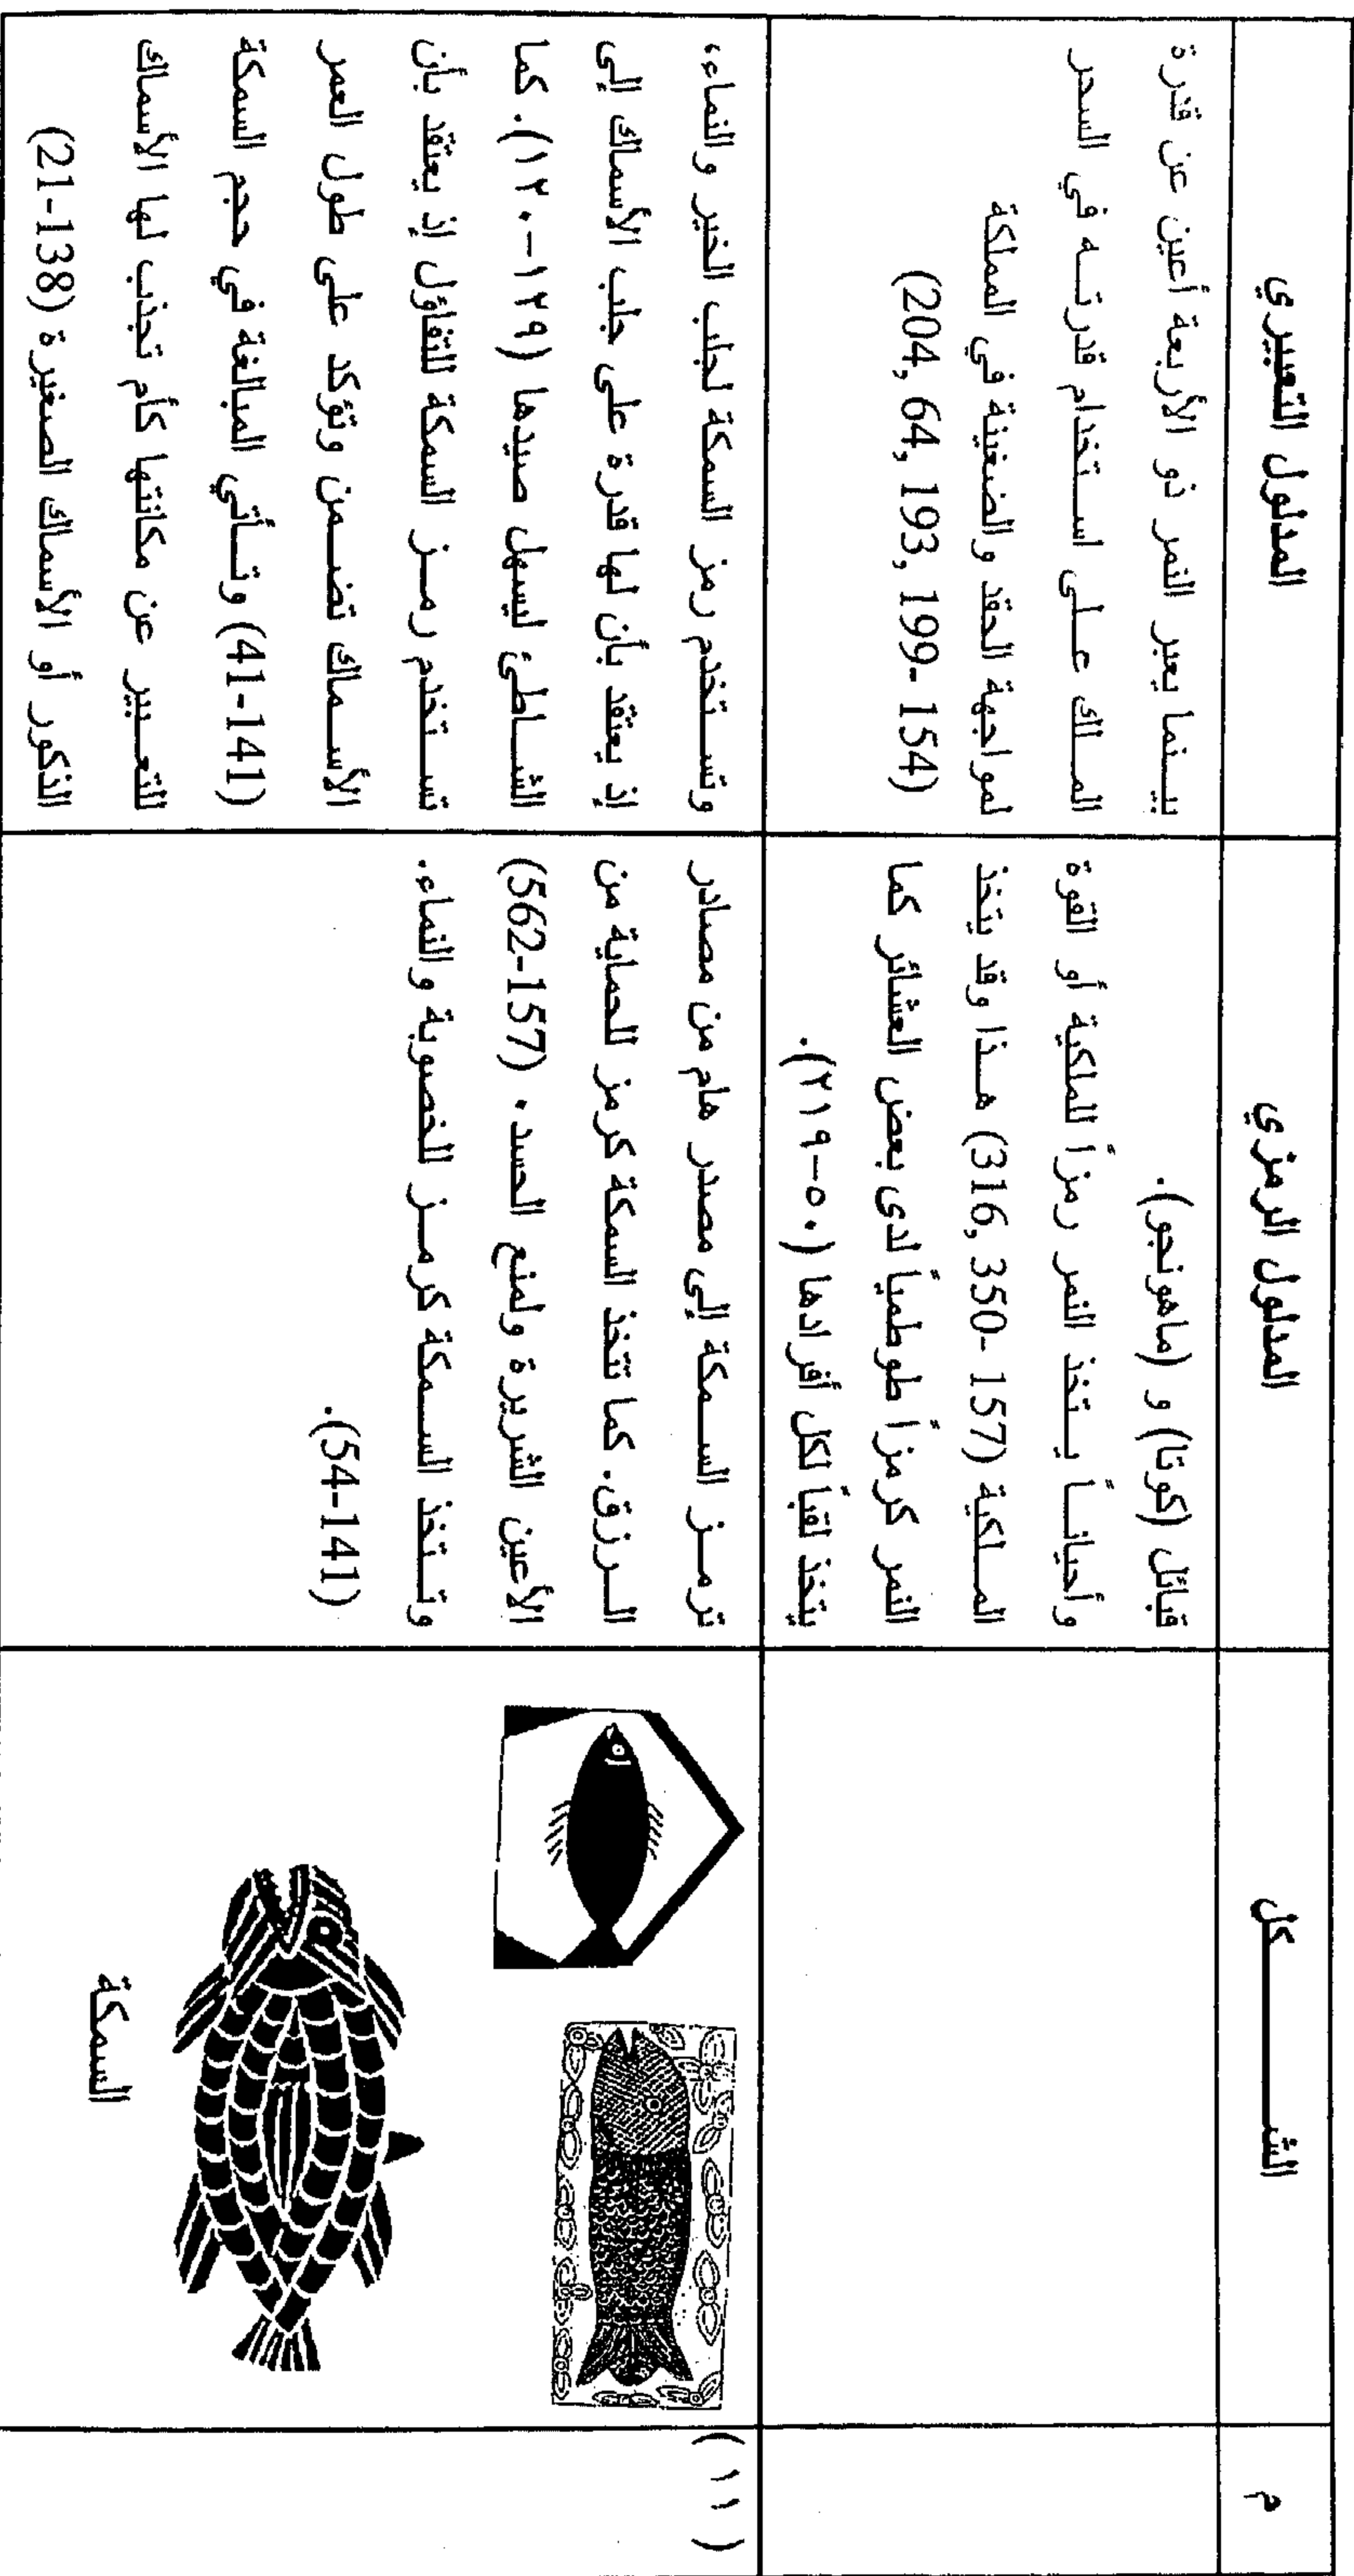 م
الشــــــــكل
المدلول الرمزي
المدلول التعبيري
قبائل (كوتا) و (ماهونجو).
وأحيانـاً يـتخذ النمر رمزاً للملكية أو القوة
المـلكية (157 -350 ,316) هـذا وقد يتخذ
النمر كرمزاً طوطمياً لدى بعض العشائر كما
يتخذ لقباً لكل أفرادها (٥٠-٢١٩).
بيـنما يعبر النمر ذو الأربعة أعين عن قدرة
المـلك عـلى اسـتخدام قدرتـه في السحر
لمواجهة الحقد والضغينة في المملكة
(204, 64, 193, 199- 154)
(١١)
السمكة
ترمـز السـمكة إلى مصدر هام من مصادر
الـرزق. كما تتخذ السمكة كرمز للحماية من
الأعين الشريرة ولمنع الحسد. (562-157)
وتـتخذ السـمكة كرمـز للخصوبة والنماء.
(54-141).
وتسـتخدم رمز السمكة لجلب الخير والنماء،
إذ يعتقد بأن لها قدرة على جلب الأسماك إلى
الشـاطئ ليسهل صيدها (١٢٩-١٢٠). كما
تسـتخدم رمـز السمكة للتفاؤل إذ يعتقد بأن
الأسـماك تضـمن وتؤكد على طول العمر
(41-141) وتـأتي المبالغة في حجم السمكة
للتعـبير عن مكانتها كأم تجذب لها الأسماك
الذكور أو الأسماك الصغيرة (21-138)